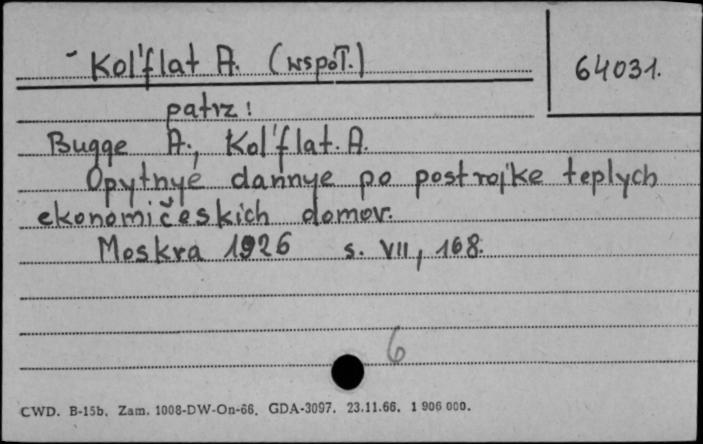 Kol'flat A. (współ.)
64031.
patrz:
Bugge A., Kol'flat. A.
Opytnye dannye po postrojke teplych
ekonomičeskich domov.
Moskva 1926 s. VII, 168.
6
CWD. B-15b. Zam. 1008-DW-On-66. GDA-3097. 23.11.66. 1 906 000.